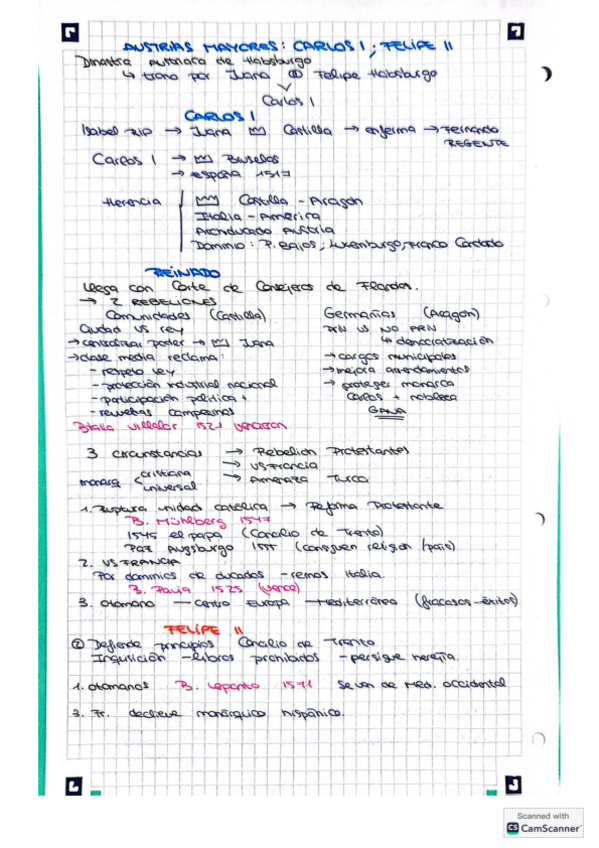 AUSTRIAS MAYORES: CARLOS I; FELIPE II
Dinastía Autríaca de Habsburgo
↳ trono por Juana Felipe Habsburgo
Carlos I
CARLOS I
Isabel RIP → Juana Castilla → enferma → Fernando
REGENTE
Carlos I → Bruselas
→ españa 1517
Herencia
Castilla - Aragon
Italia - America
Archiducado Austria
Dominio: P. Bajos; Luxemburgo, Franco Condado
REINADO
llega con Corte de Consejeros de Flandes.
→ 2 REBELIONES
Comunidades (Castilla) Germanias (Aragon)
Ciudad VS rey
↳ democratización
→ centralizar poder → Juana
→ clase media reclama: → cargos municipales
- respeto ley → mejora arrendamientos
- protección industrial nacional → proteges monarca
- participación política + Carlos + nobleza
- revueltas campesinas GANA
Btalla Villalar 1521 vencieron
3 circunstancias → Rebelion Protestantes
→ VS Francia
monarq cristiana → Amenaza Turca
universal
1. Ruptura unidad católica → Reforma Protestante
B. Mühlberg 1547
1545 el papa (Concilio de Trento)
Paz Augsburgo 1555 (consiguen religion /país)
2. VS FRANCIA
Por dominios de ducados - reinos Italia.
B. Pavia 1525 (vence)
3. otomano — Centro Europa — Mediterránea (fracasos - éxitos)
FELIPE II
② Defiende principios Concilio de Trento
Inquisición - libros prohibidos - persigue herejía
1. otomanos B. Lepanto 1571 Se van de Med. occidental
3. Fr. declive monárquico hispánico.
Scanned with
CS CamScanner